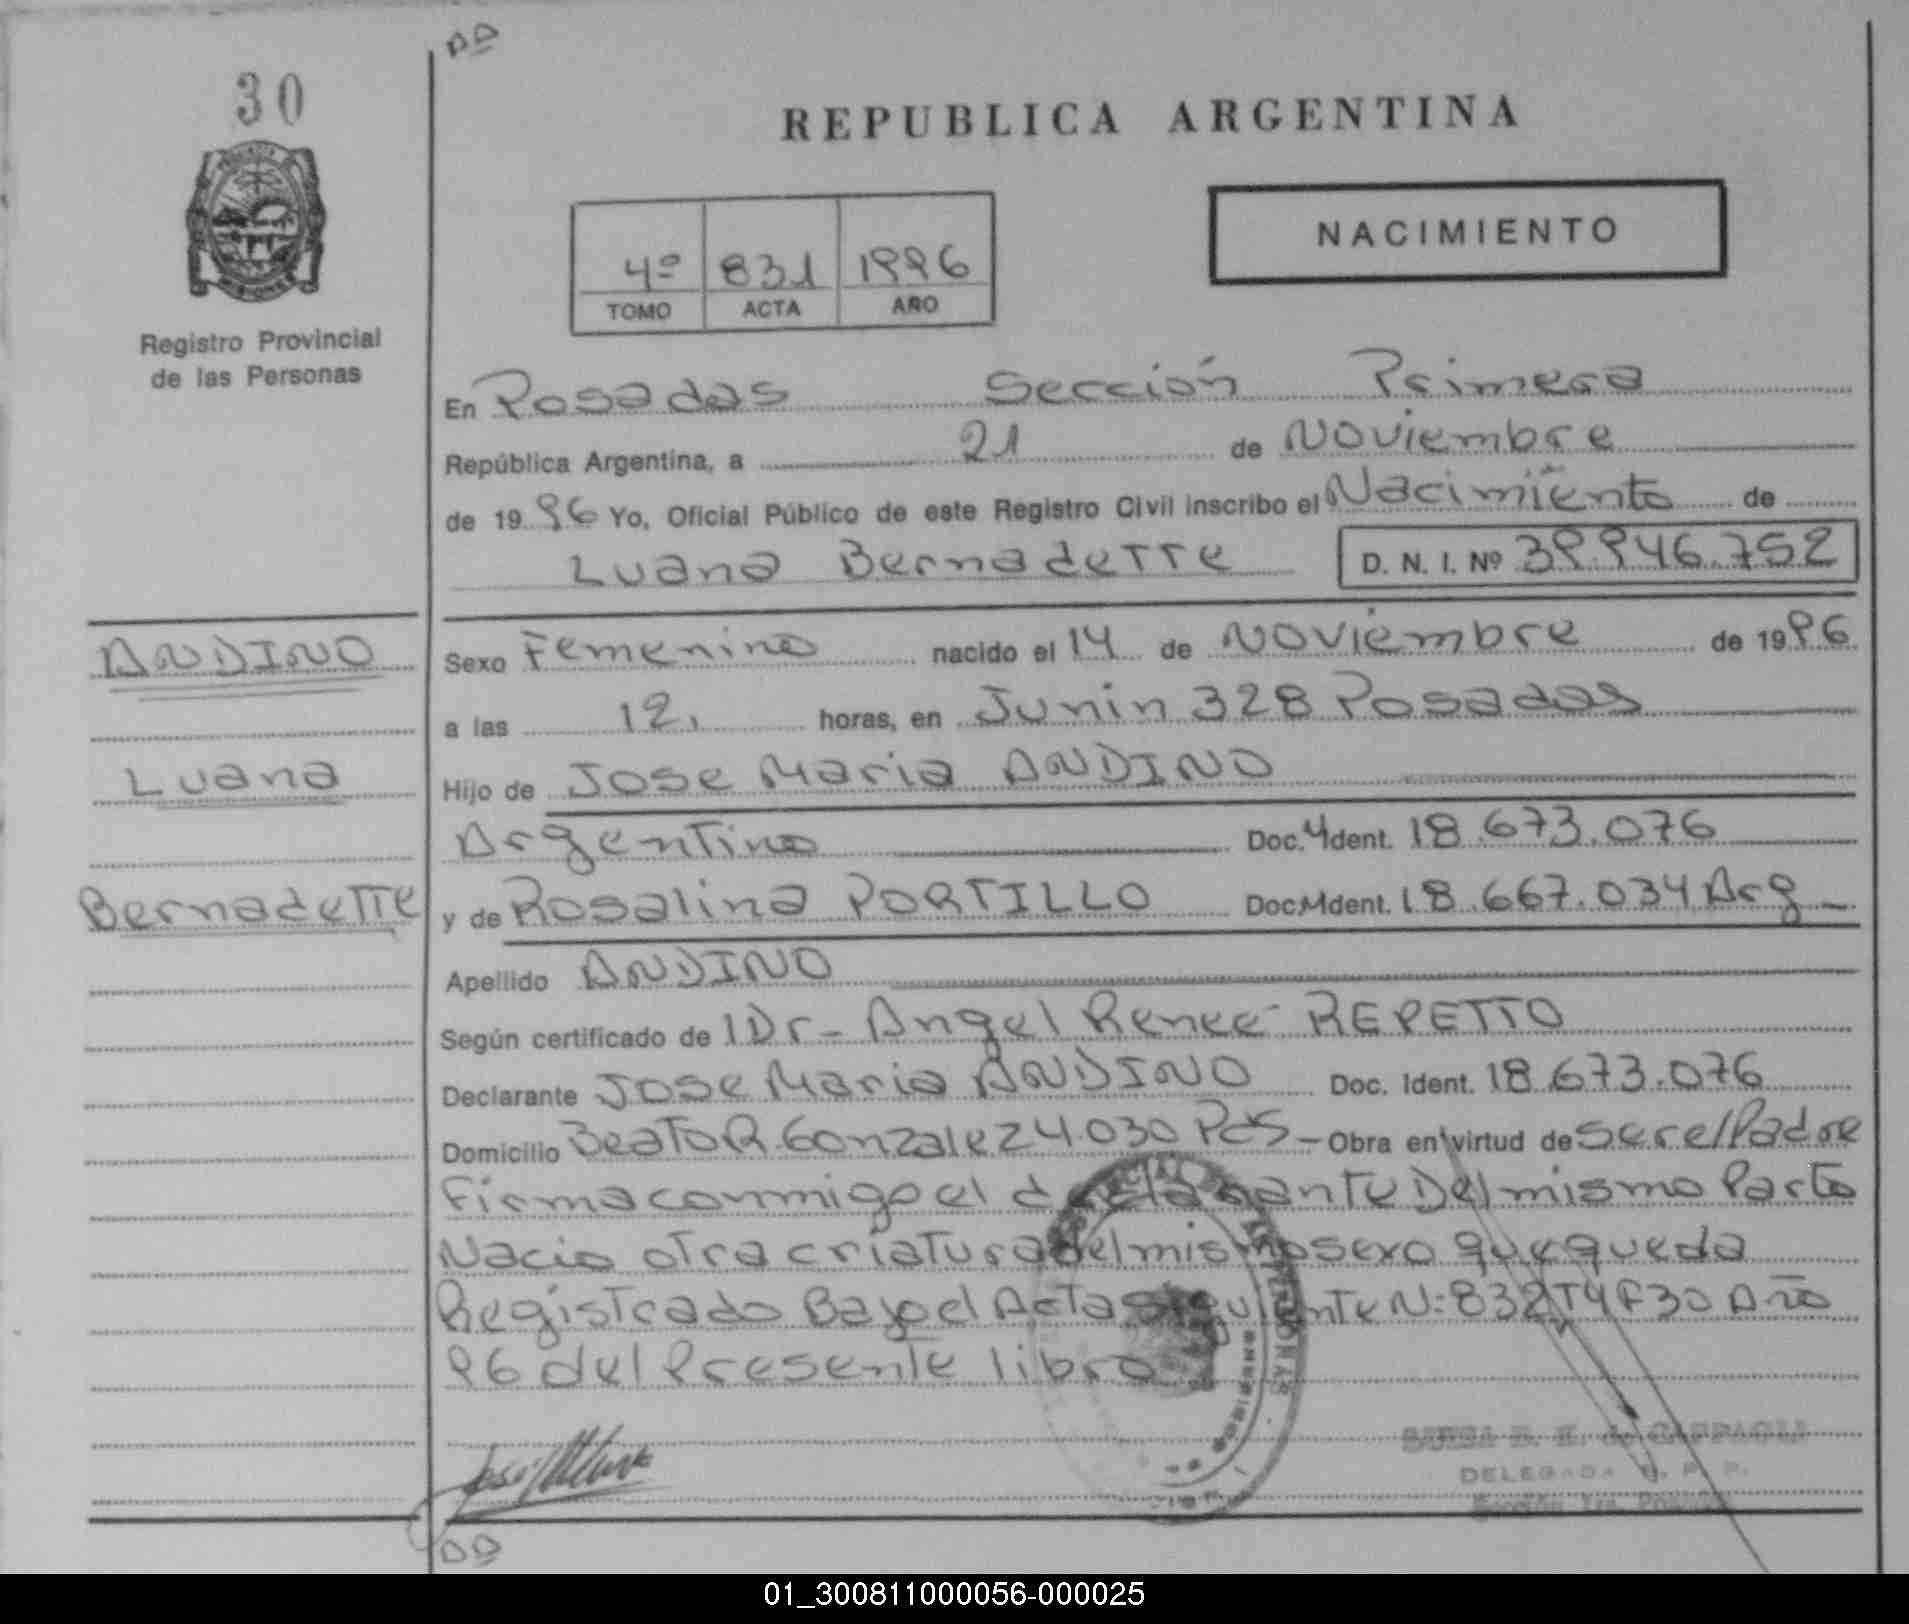 DD
30
REPUBLICA ARGENTINA
NACIMIENTO
4º 831 1996
TOMO ACTA AÑO
Registro Provincial
de las Personas
En Posadas Sección Primera
República Argentina, a 21 de Noviembre
de 1996 Yo, Oficial Público de este Registro Civil inscribo el Nacimiento de
Luana Bernadette D. N. I. Nº 39.946.752
ANDINO
Luana
Bernadette
Sexo Femenino nacido el 14 de Noviembre de 1996
a las 12, horas, en Junin 328 Posadas
Hijo de Jose Maria ANDINO
Argentino Doc. Ident. 18.673.076
y de Rosalina PORTILLO Doc. Ident. 18.667.034 Arg
Apellido ANDINO
Según certificado de Dr- Angel Renee REPETTO
Declarante Jose Maria ANDINO Doc. Ident. 18.673.076
Domicilio Beato R. Gonzalez 4.030 Pds - Obra en virtud de ser el Padre
Firma conmigo el declarante Del mismo Parto
Nacio otra criatura del mismo sexo que queda
Registrado Bajo el Acta siguiente N: 832 T4 F30 Año
96 del Presente libro
DELEGADA R. P. P.
DD
01_300811000056-000025